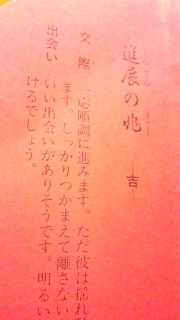 進展の兆 ―吉―
交際 一応順調に進みます。ただ彼は揺れ
ます。しっかりつかまえて離さない
出会い いい出会いがありそうです。明るい
けるでしょう。